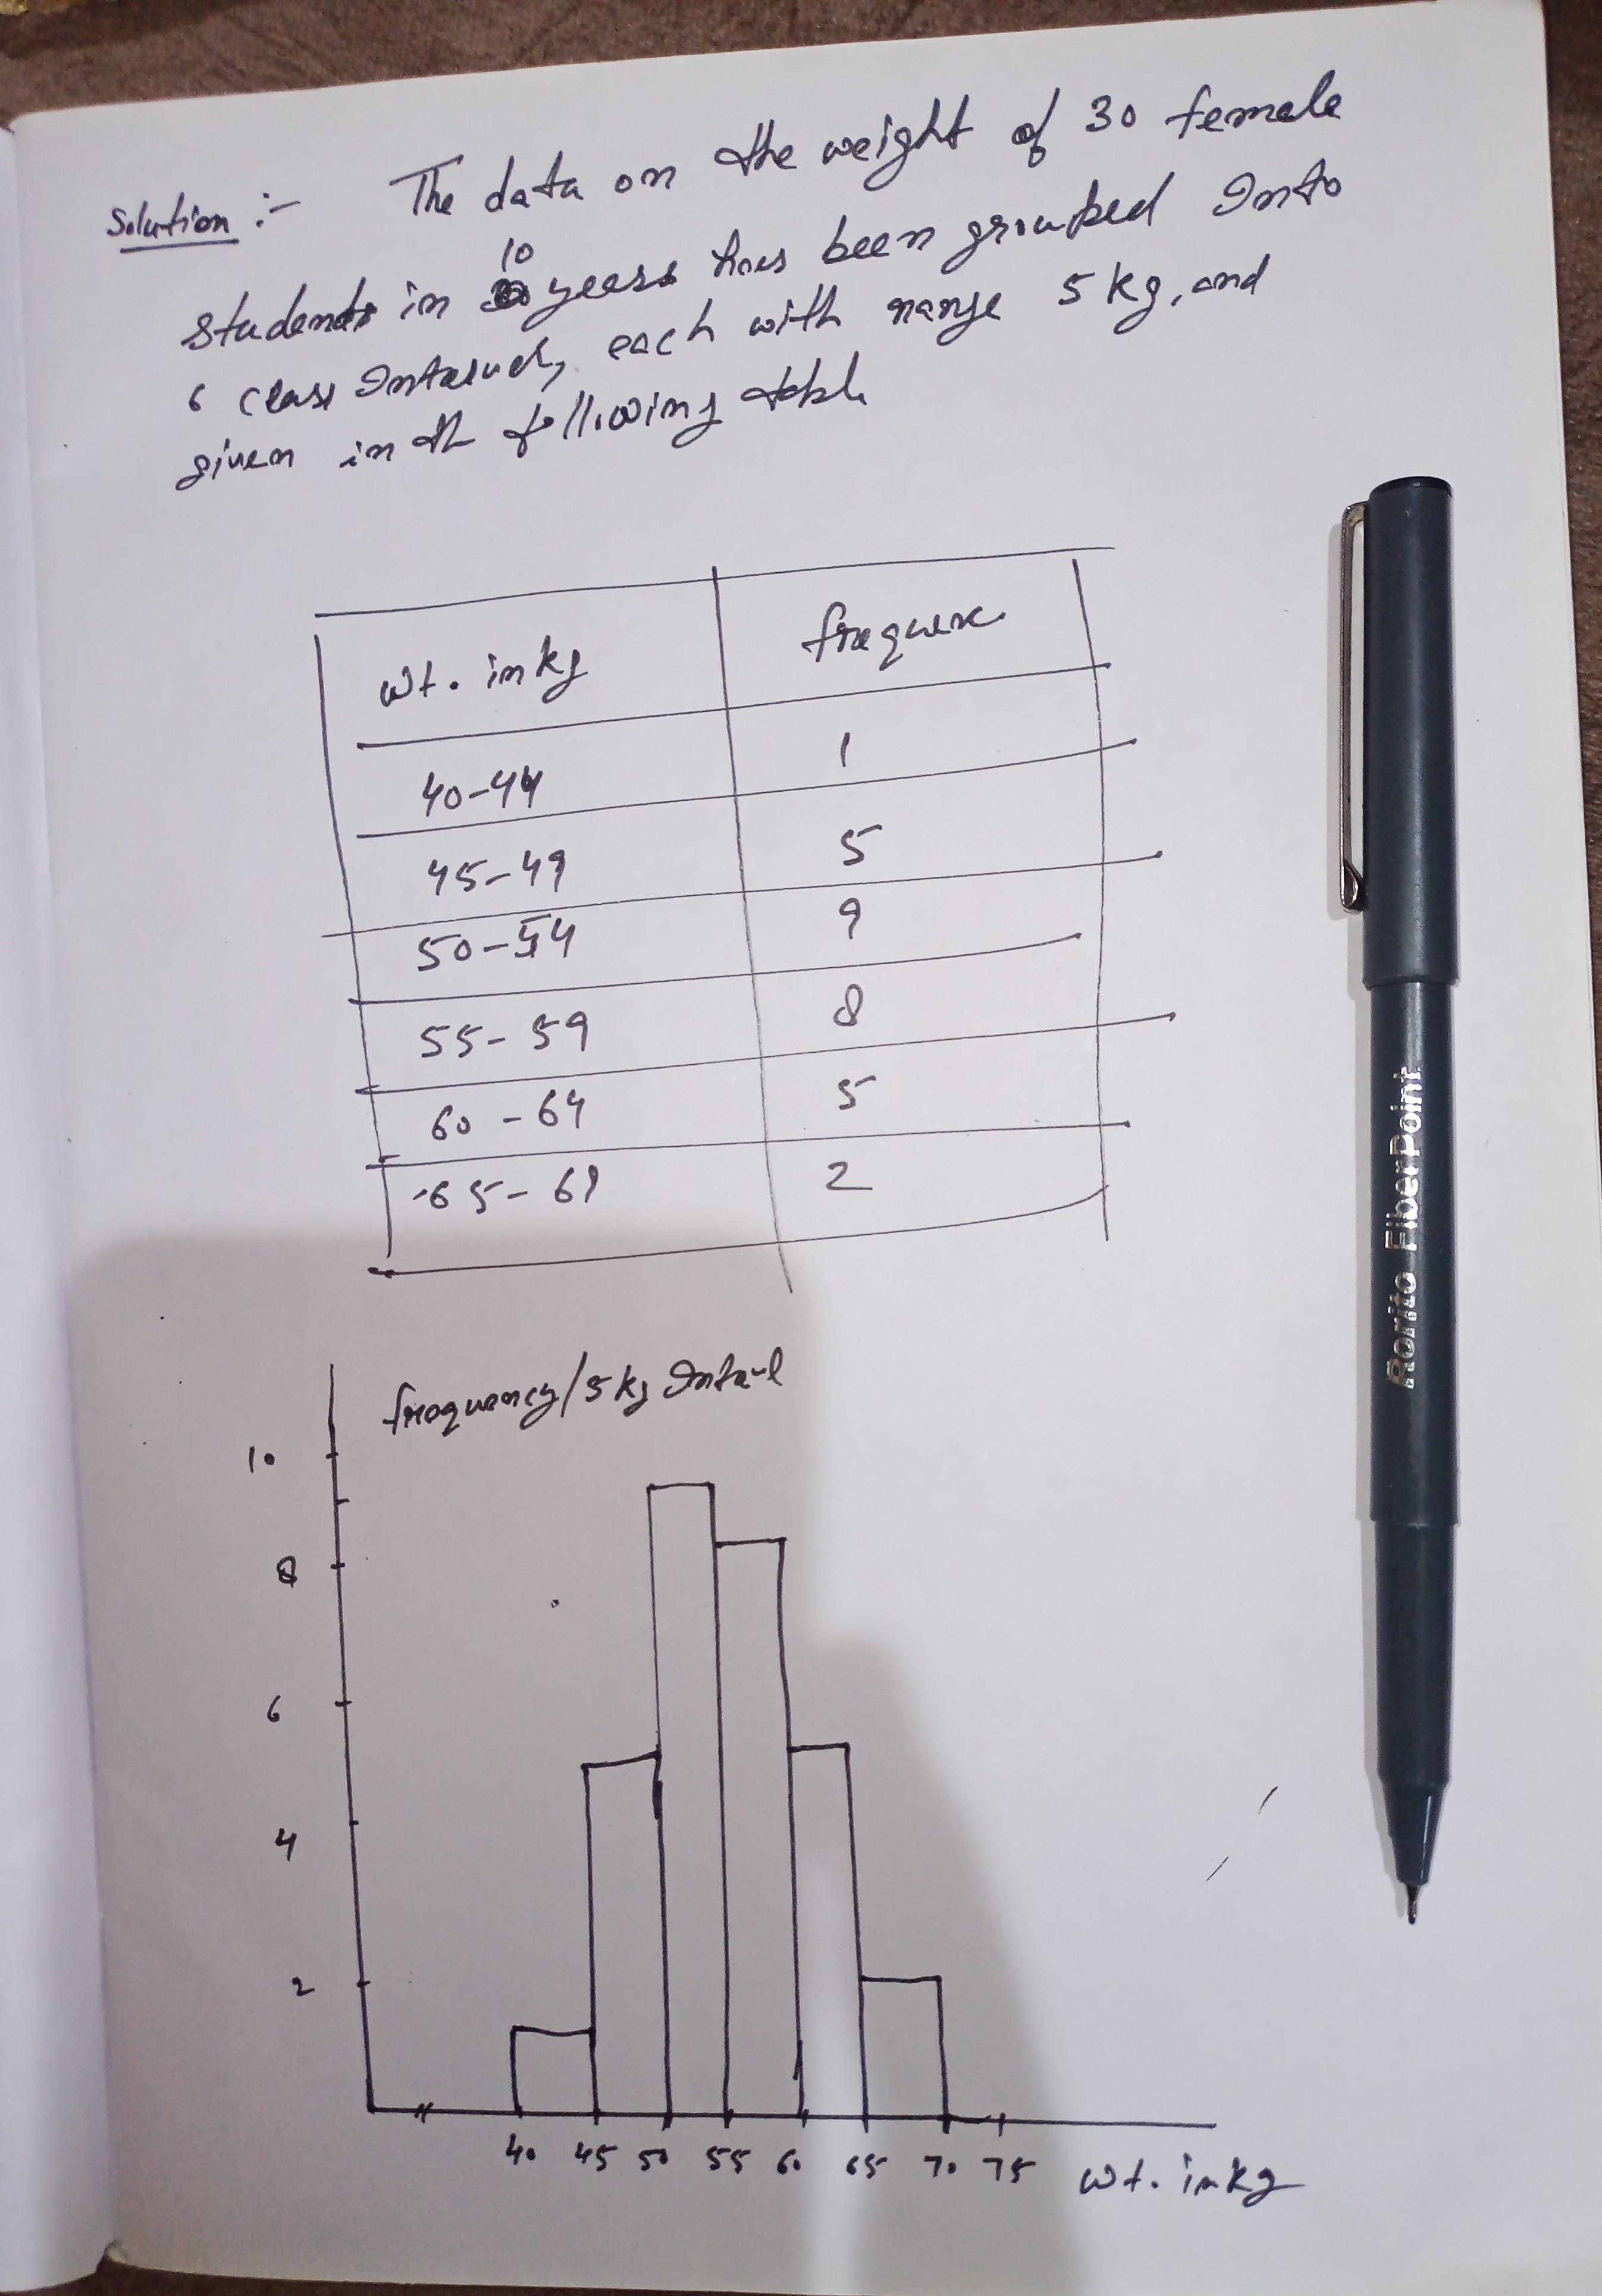 Solution :- The data on the weight of 30 female
students in 10 years has been grouped Into
6 class Interval, each with range 5 kg, and
given in th following table
wt. in kg frequenc
40-44 1
45-49 5
50-54 9
55-59 8
60-64 5
65-69 2
frequency/5 kg Interval
10
8
6
4
2
40 45 50 55 60 65 70 75 wt. in kg
Rorito FiberPoint